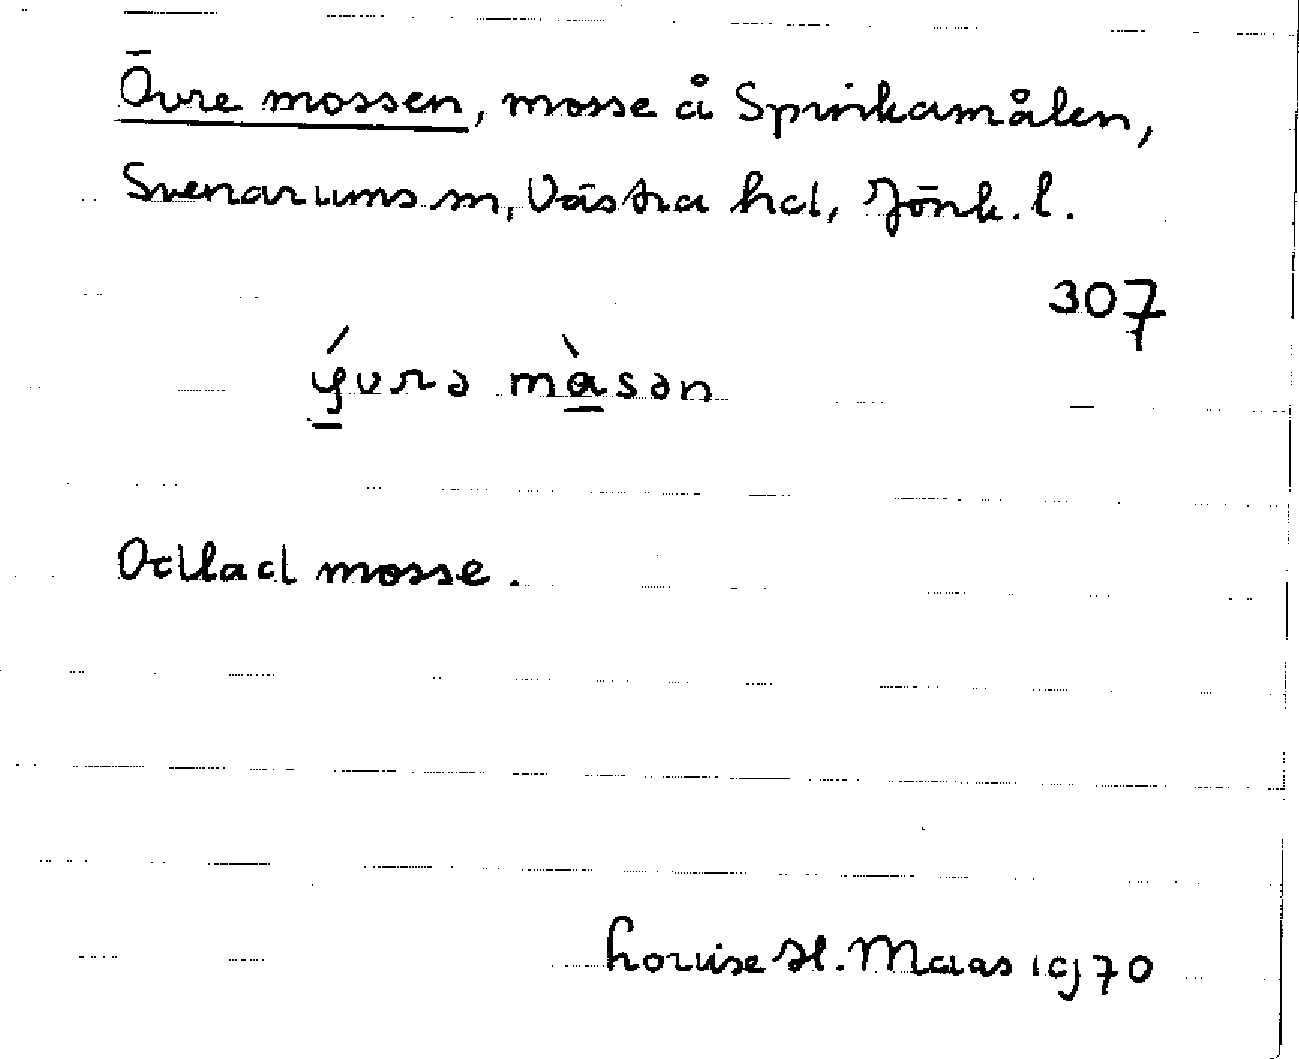 Övre mossen, mosse å Spinkamålen,
Svenarums sn, Västra hd, Jönk. l.
307
ý̱vrə mɑ̱̀sən
Odlad mosse.
Louise H. Maas 1970